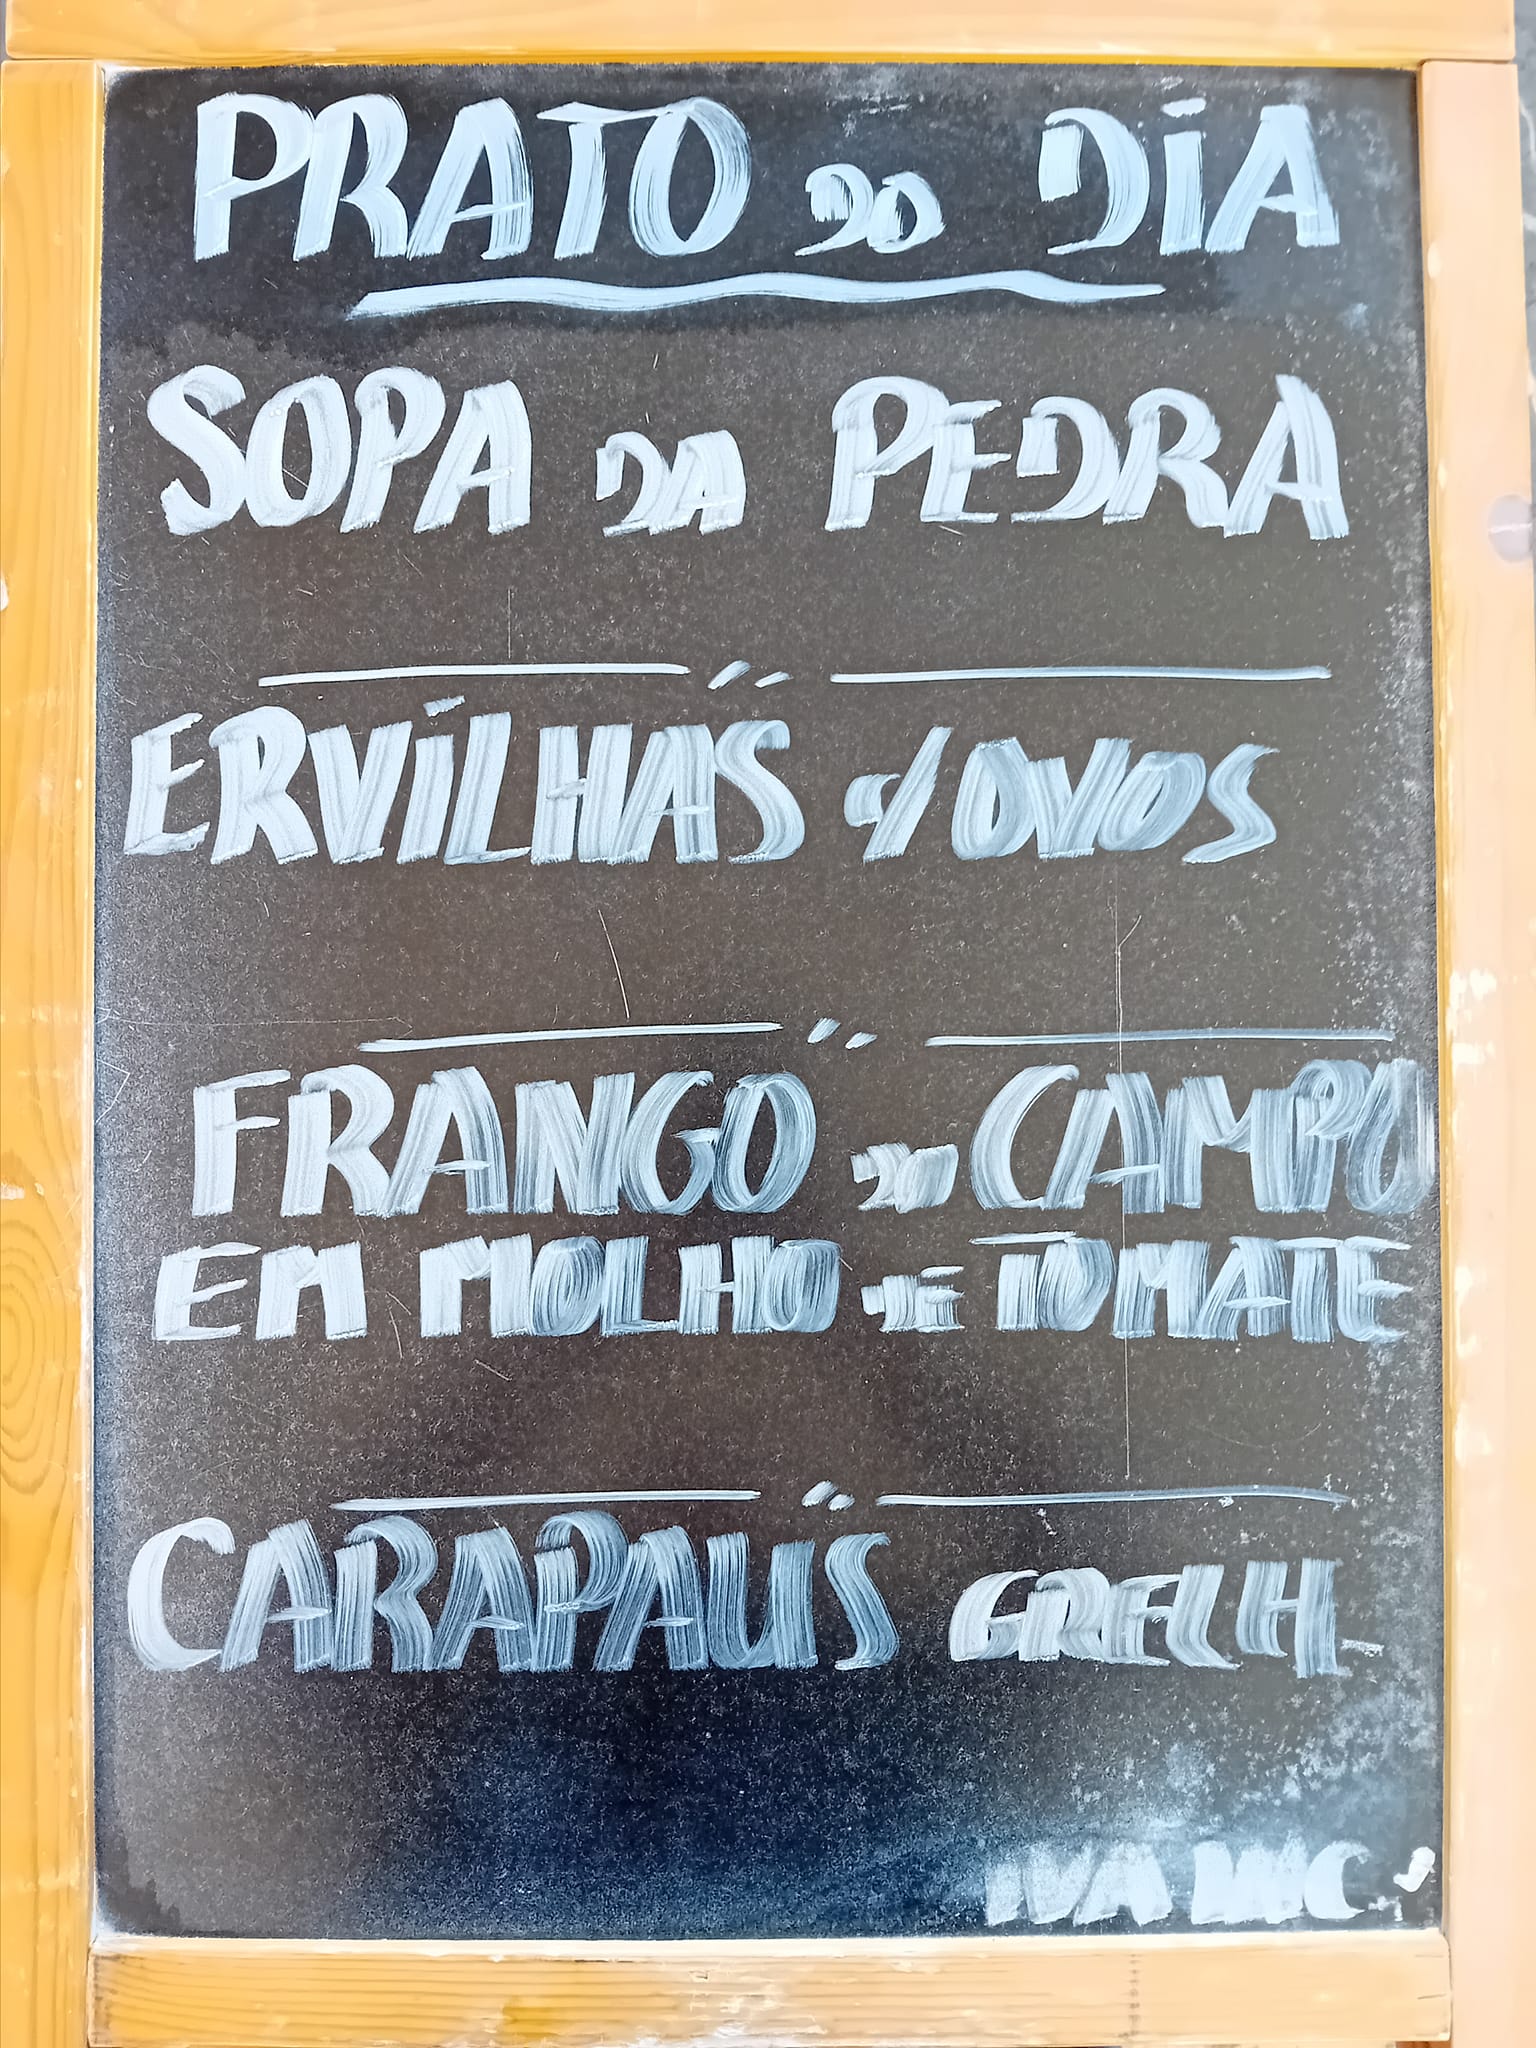 PRATO DO DIA
SOPA DA PEDRA
ERVILHAS C/OVOS
FRANGO DO CAMPO
EM MOLHO DE TOMATE
CARAPAUS GRELH.
IVA INC.